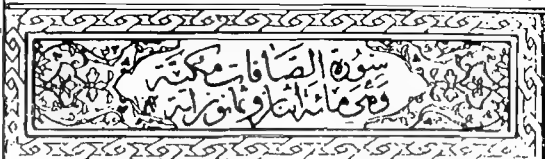 سورة الصافات مكية
وهى مائة اثنان وثمانون اية